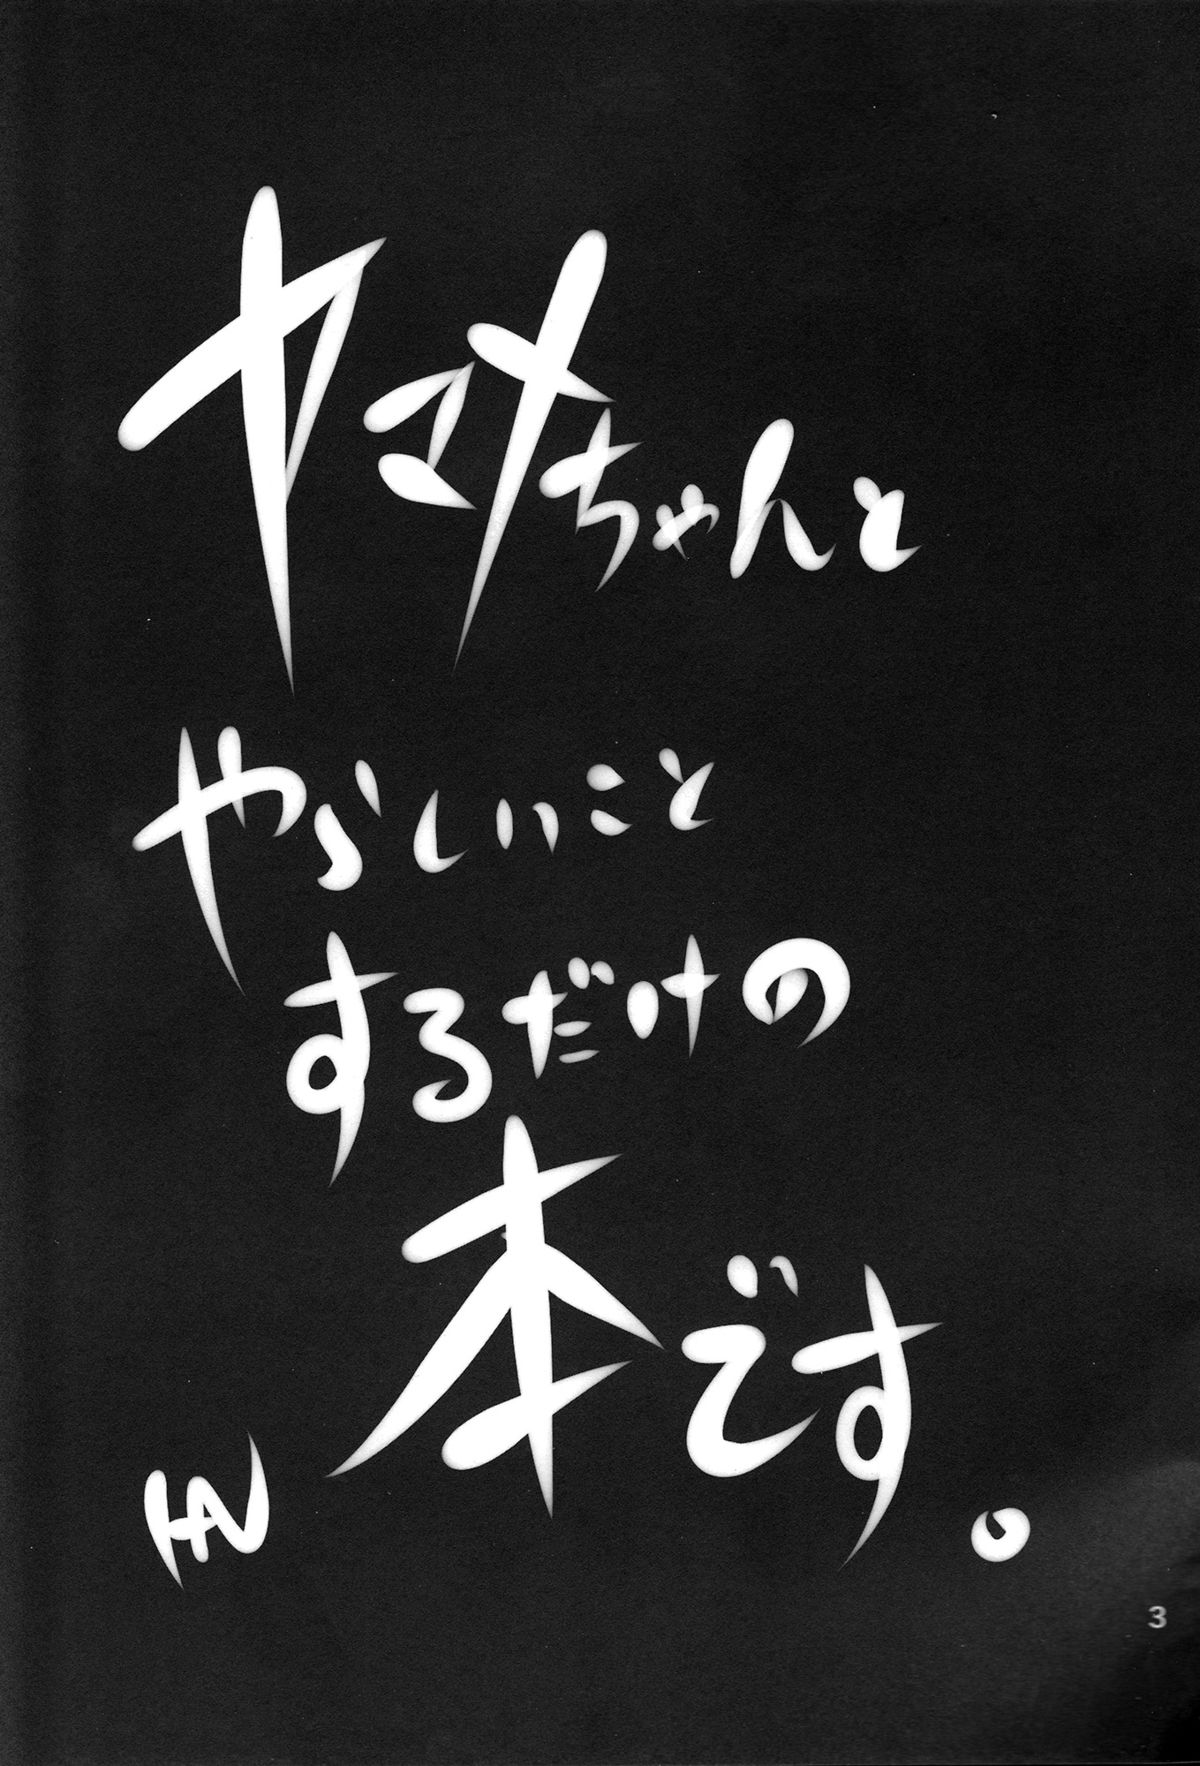 ヤマメちゃんと
やらしいこと
するだけの
本です。
3